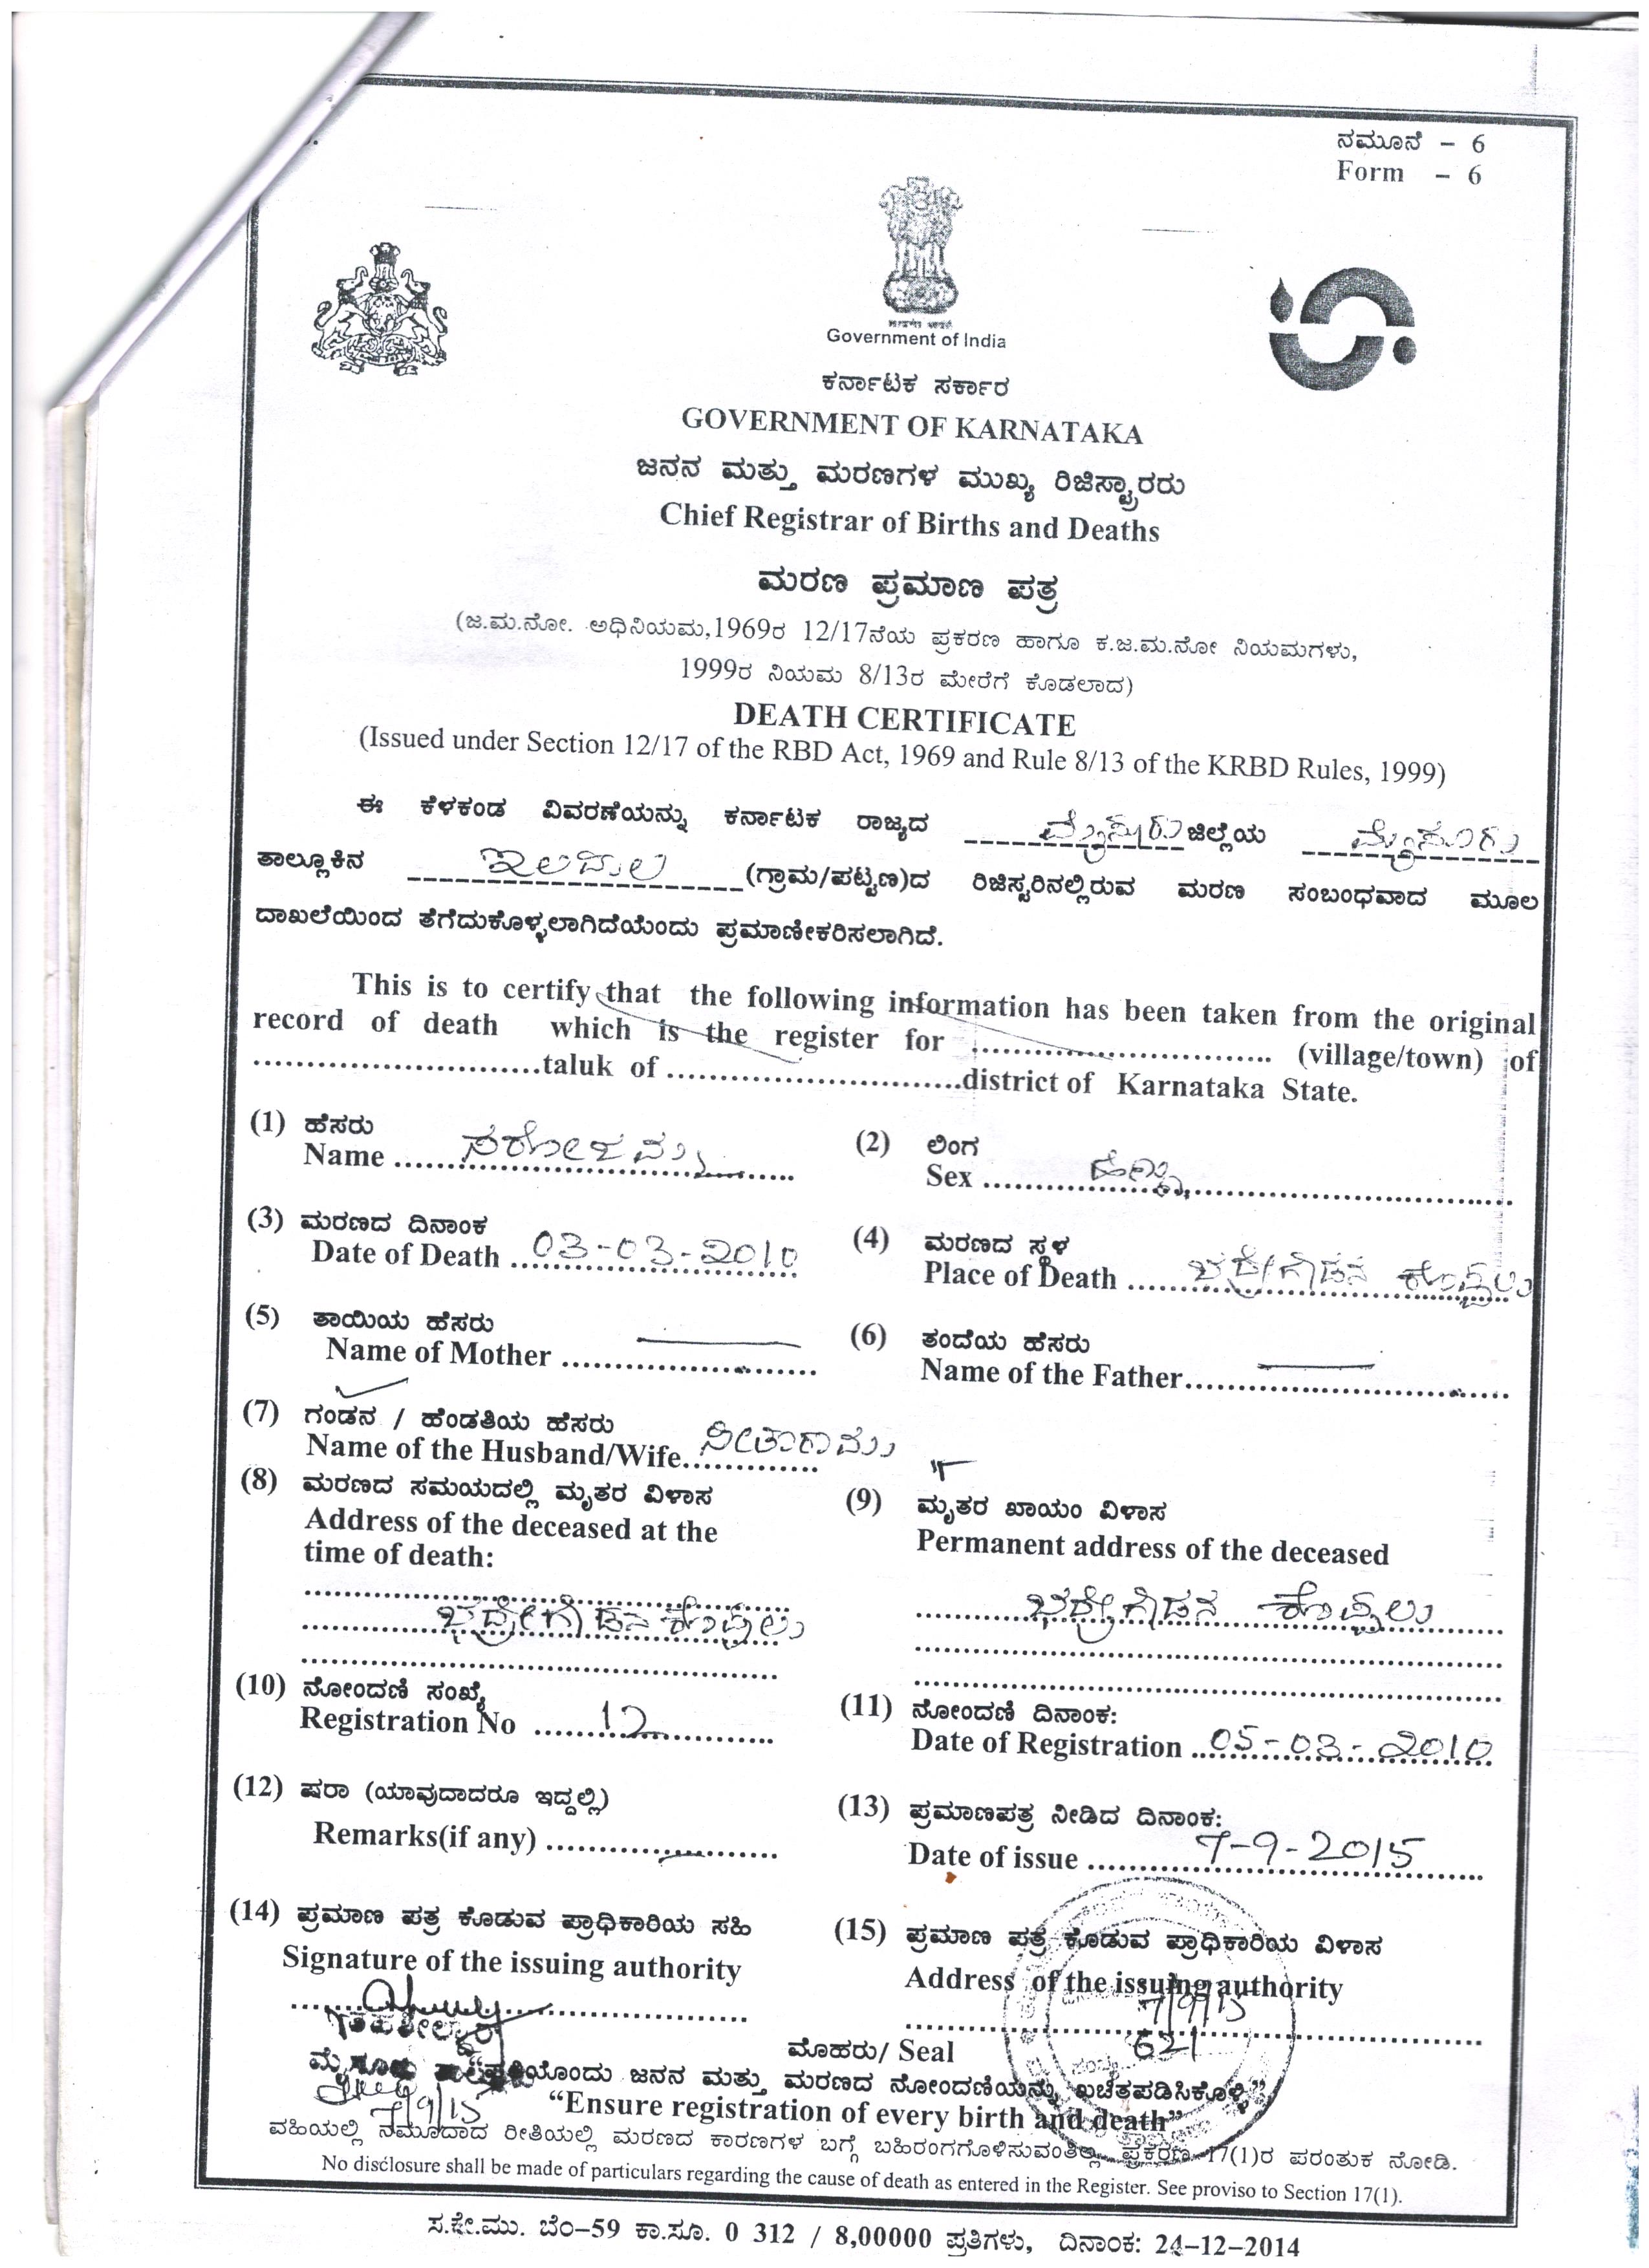 ನಮೂನೆ - 6
Form - 6
Government of India
ಕರ್ನಾಟಕ ಸರ್ಕಾರ
GOVERNMENT OF KARNATAKA
ಜನನ ಮತ್ತು ಮರಣಗಳ ಮುಖ್ಯ ರಿಜಿಸ್ಟ್ರಾರರು
Chief Registrar of Births and Deaths
ಮರಣ ಪ್ರಮಾಣ ಪತ್ರ
(ಜ.ಮ.ನೋ. ಅಧಿನಿಯಮ,1969ರ 12/17ನೆಯ ಪ್ರಕರಣ ಹಾಗೂ ಕ.ಜ.ಮ.ನೋ ನಿಯಮಗಳು,
1999ರ ನಿಯಮ 8/13ರ ಮೇರೆಗೆ ಕೊಡಲಾದ)
DEATH CERTIFICATE
(Issued under Section 12/17 of the RBD Act, 1969 and Rule 8/13 of the KRBD Rules, 1999)
ಈ ಕೆಳಕಂಡ ವಿವರಣೆಯನ್ನು ಕರ್ನಾಟಕ ರಾಜ್ಯದ ಮೈಸೂರು ಜಿಲ್ಲೆಯ ಮೈಸೂರು
ತಾಲ್ಲೂಕಿನ ಇಲವಾಲ (ಗ್ರಾಮ/ಪಟ್ಟಣ)ದ ರಿಜಿಸ್ಟರಿನಲ್ಲಿರುವ ಮರಣ ಸಂಬಂಧವಾದ ಮೂಲ
ದಾಖಲೆಯಿಂದ ತೆಗೆದುಕೊಳ್ಳಲಾಗಿದೆಯೆಂದು ಪ್ರಮಾಣೀಕರಿಸಲಾಗಿದೆ.
This is to certify that the following information has been taken from the original
record of death which is the register for .............................. (village/town) of
.............................taluk of ..............................district of Karnataka State.
(1) ಹೆಸರು (2) ಲಿಂಗ
Name ಸರೋಜಮ್ಮ Sex ಹೆಣ್ಣು
(3) ಮರಣದ ದಿನಾಂಕ (4) ಮರಣದ ಸ್ಥಳ
Date of Death 03-03-2010 Place of Death ಭದ್ರೇಗೌಡನ ಕೊಪ್ಪಲು
(5) ತಾಯಿಯ ಹೆಸರು (6) ತಂದೆಯ ಹೆಸರು
Name of Mother Name of the Father
(7) ಗಂಡನ / ಹೆಂಡತಿಯ ಹೆಸರು
Name of the Husband/Wife ಸೀತಾರಾಮು
(8) ಮರಣದ ಸಮಯದಲ್ಲಿ ಮೃತರ ವಿಳಾಸ (9) ಮೃತರ ಖಾಯಂ ವಿಳಾಸ
Address of the deceased at the Permanent address of the deceased
time of death:
ಭದ್ರೇಗೌಡನ ಕೊಪ್ಪಲು ಭದ್ರೇಗೌಡನ ಕೊಪ್ಪಲು
(10) ನೋಂದಣಿ ಸಂಖ್ಯೆ (11) ನೋಂದಣಿ ದಿನಾಂಕ:
Registration No 12 Date of Registration 05-03-2010
(12) ಷರಾ (ಯಾವುದಾದರೂ ಇದ್ದಲ್ಲಿ) (13) ಪ್ರಮಾಣಪತ್ರ ನೀಡಿದ ದಿನಾಂಕ:
Remarks(if any) Date of issue 7-9-2015
(14) ಪ್ರಮಾಣ ಪತ್ರ ಕೊಡುವ ಪ್ರಾಧಿಕಾರಿಯ ಸಹಿ (15) ಪ್ರಮಾಣ ಪತ್ರ ಕೊಡುವ ಪ್ರಾಧಿಕಾರಿಯ ವಿಳಾಸ
Signature of the issuing authority Address of the issuing authority
7/9/15
621
ಮೊಹರು/ Seal
ಮೈಸೂರು
"ಪ್ರತಿಯೊಂದು ಜನನ ಮತ್ತು ಮರಣದ ನೋಂದಣಿಯನ್ನು ಖಚಿತಪಡಿಸಿಕೊಳ್ಳಿ"
7/9/15
"Ensure registration of every birth and death"
ವಹಿಯಲ್ಲಿ ನಮೂದಾದ ರೀತಿಯಲ್ಲಿ ಮರಣದ ಕಾರಣಗಳ ಬಗ್ಗೆ ಬಹಿರಂಗಗೊಳಿಸುವಂತಿಲ್ಲ. ಪ್ರಕರಣ 17(1)ರ ಪರಂತುಕ ನೋಡಿ.
No disclosure shall be made of particulars regarding the cause of death as entered in the Register. See proviso to Section 17(1).
ಸ.ಕೇ.ಮು. ಬೆಂ-59 ಕಾ.ಸೂ. 0 312 / 8,00000 ಪ್ರತಿಗಳು, ದಿನಾಂಕ: 24-12-2014